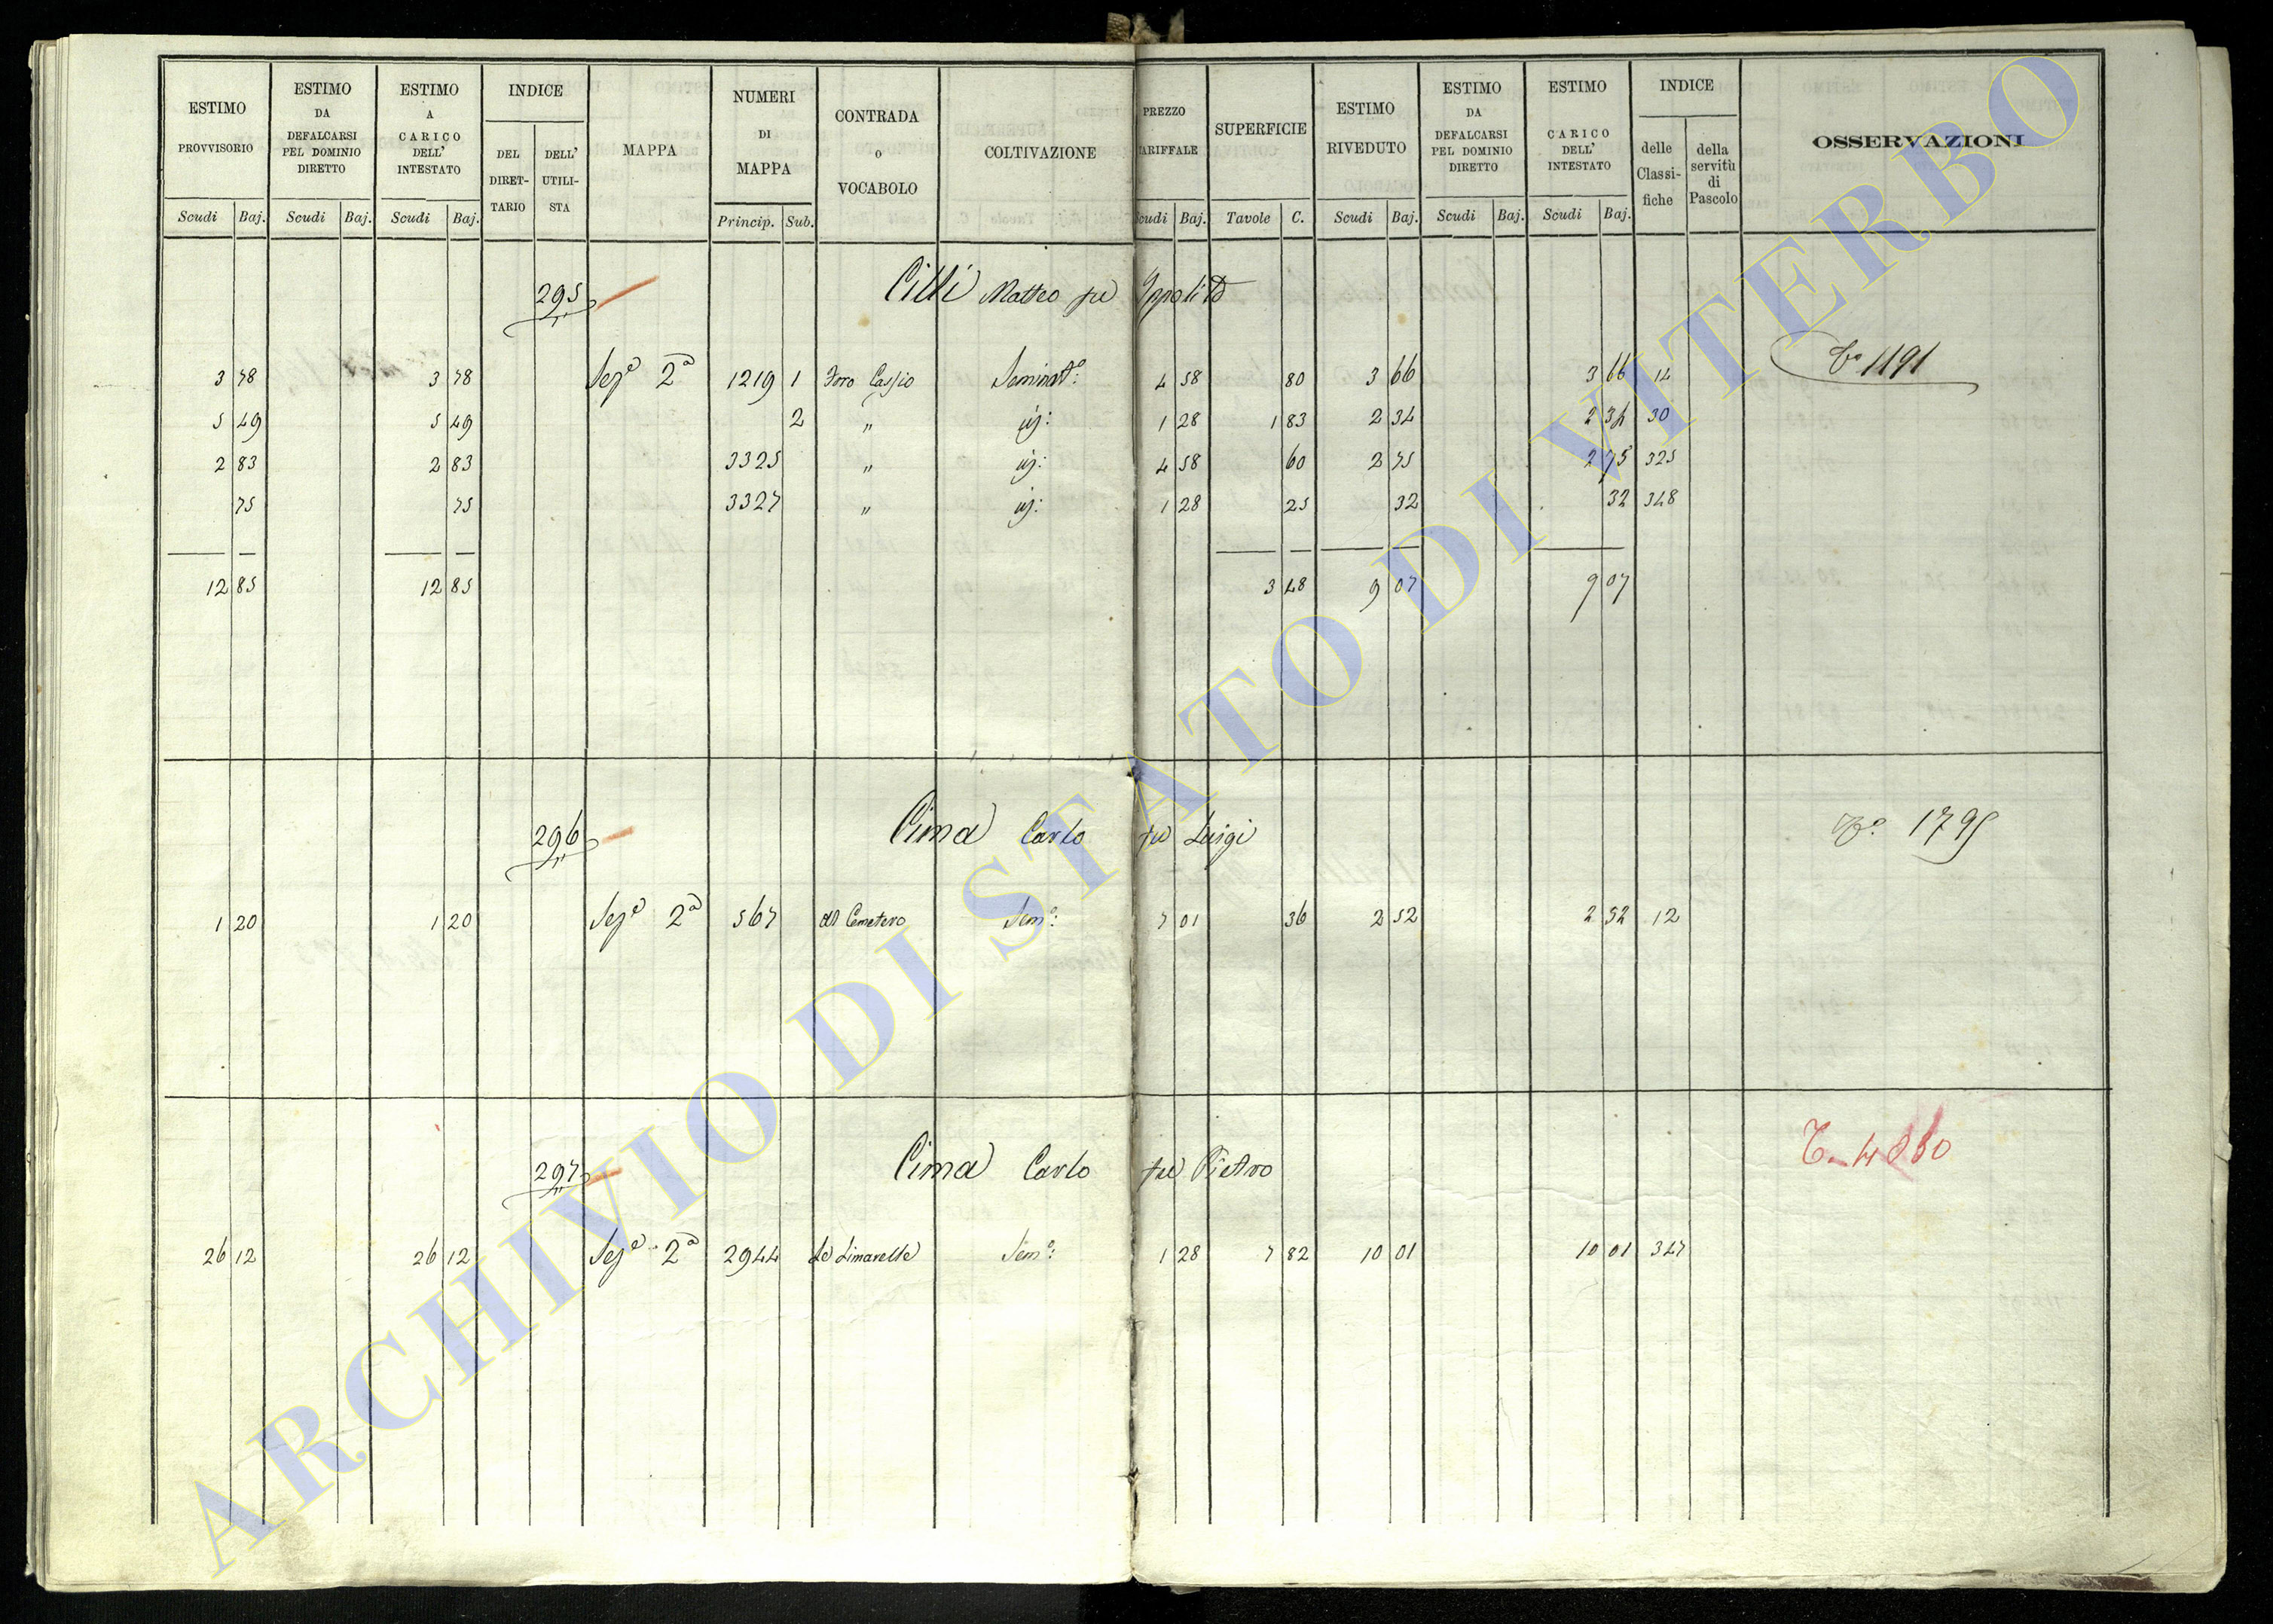 ESTIMO PROVVISORIO Scudi Baj.
ESTIMO DA DEFALCARSI PEL DOMINIO DIRETTO Scudi Baj.
ESTIMO A CARICO DELL' INTESTATO Scudi Baj.
INDICE DEL DIRET-TARIO DELL' UTILI-STA
MAPPA
NUMERI DI MAPPA Princip. Sub.
CONTRADA O VOCABOLO
COLTIVAZIONE
PREZZO TARIFFALE Scudi Baj.
SUPERFICIE Tavole C.
ESTIMO RIVEDUTO Scudi Baj.
ESTIMO DA DEFALCARSI PEL DOMINIO DIRETTO Scudi Baj.
ESTIMO A CARICO DELL' INTESTATO Scudi Baj.
INDICE delle Classi-fiche della servitù di Pascolo
OSSERVAZIONI
295 Cilli Matteo fu Ippolito
Tº 1191
3 78 3 78 Sezᵉ 2ª 1219 1 Foro Cassio Seminatº: 4 58 80 3 66 3 66 14
5 49 5 49 2 " id: 1 28 1 83 2 34 2 34 30
2 83 2 83 3325 " id: 4 58 60 2 75 2 75 325
75 75 3327 " id: 1 28 25 32 32 348
12 85 12 85 3 48 9 07 9 07
296 Cima Carlo fu Luigi Tº 1795
1 20 1 20 Sezᵉ 2ª 567 al Cemetero Semº: 7 01 36 2 52 2 52 12
297 Cima Carlo fu Pietro
26 12 26 12 Sezᵉ 2ª 2944 Le Limarelle Semº: 1 28 7 82 10 01 10 01 347
ARCHIVIO DI STATO DI VITERBO